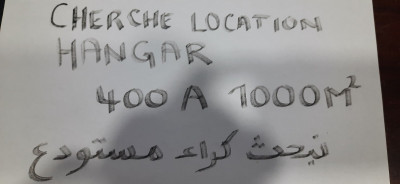 CHERCHE LOCATION
HANGAR
400 A 1000M²
نبحث كراء مستودع